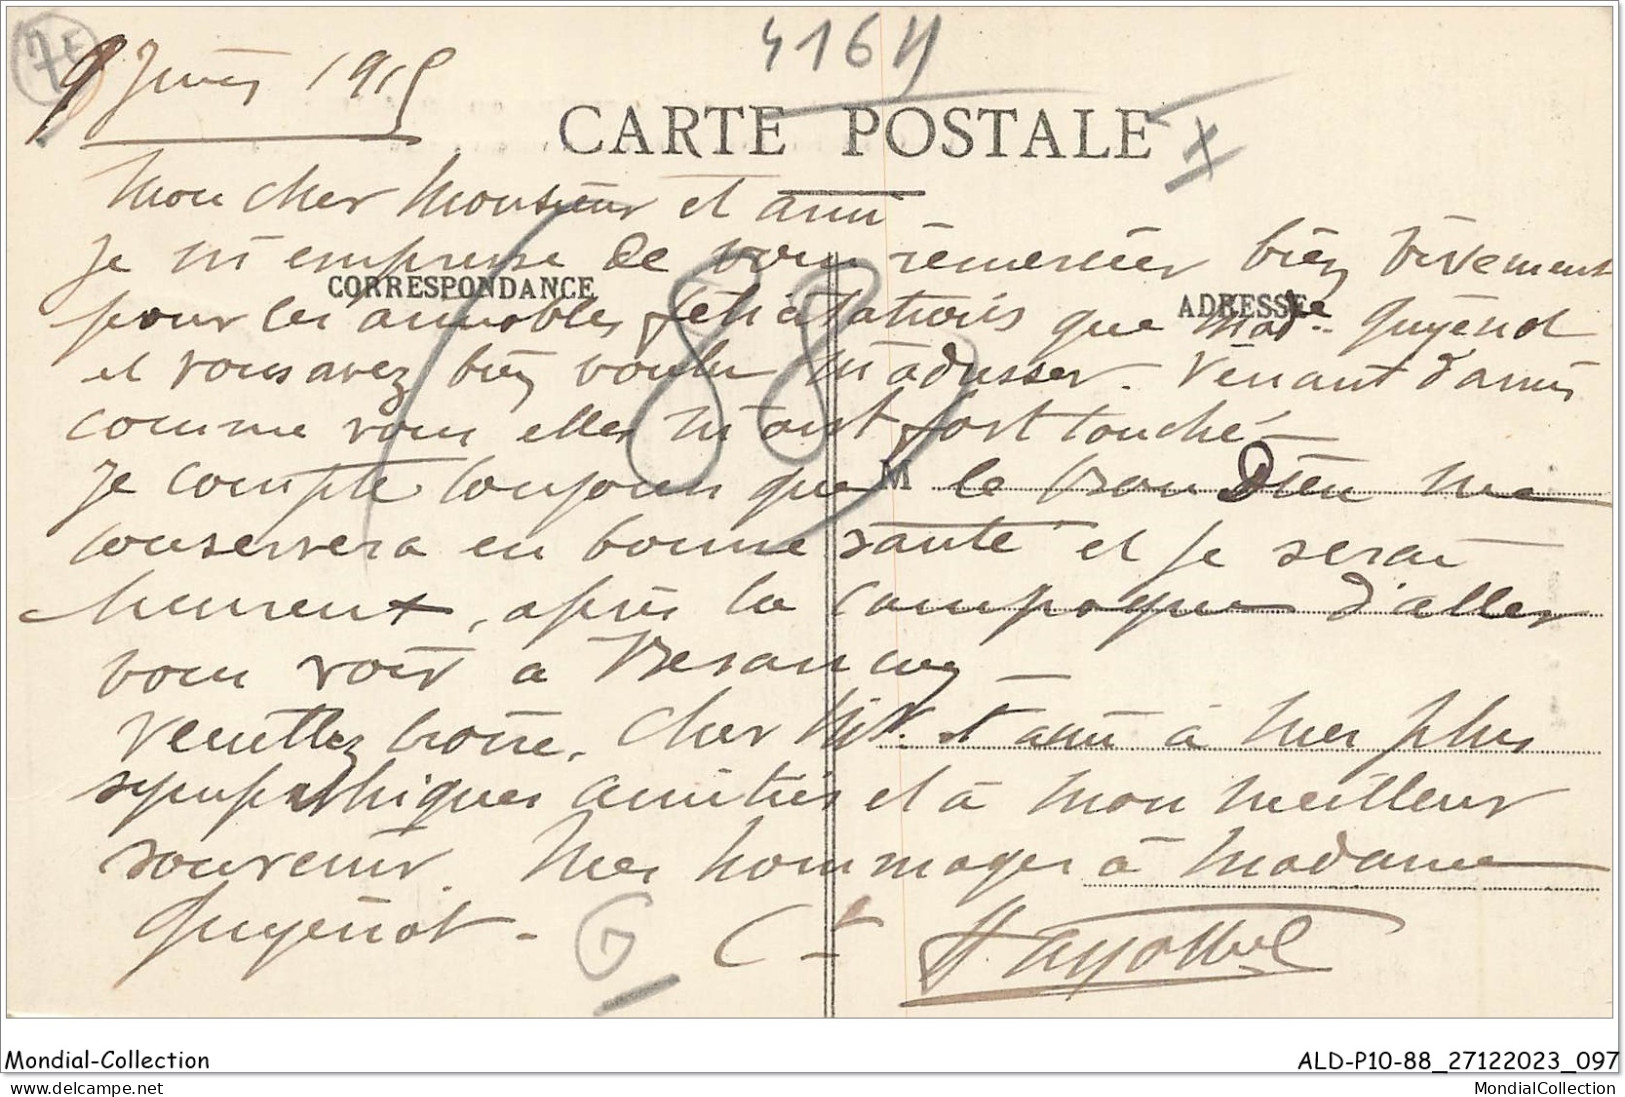 4164
9 Juin 1915
CARTE POSTALE
Mon cher Monsieur et ami
Je m'empresse de vous remercier bien vivement
CORRESPONDANCE
ADRESSE
pour les aimables félicitations que Made Guyenot
et vous avez bien voulu m'adresser. Venant d'amis
comme vous elles m'ont fort touché
Je compte toujours que M le bon Dieu me
conservera en bonne santé et je serai
heureux, après la campagne d'aller
vous voir à Besançon
Veuillez croire, cher Mr. et ami à mes plus
sympathiques amitiés et à mon meilleur
souvenir. Mes hommages à Madame
Guyenot - Ct
(88)
G
Mondial-Collection
ALD-P10-88_27122023_097
© www.delcampe.net
MondialCollection